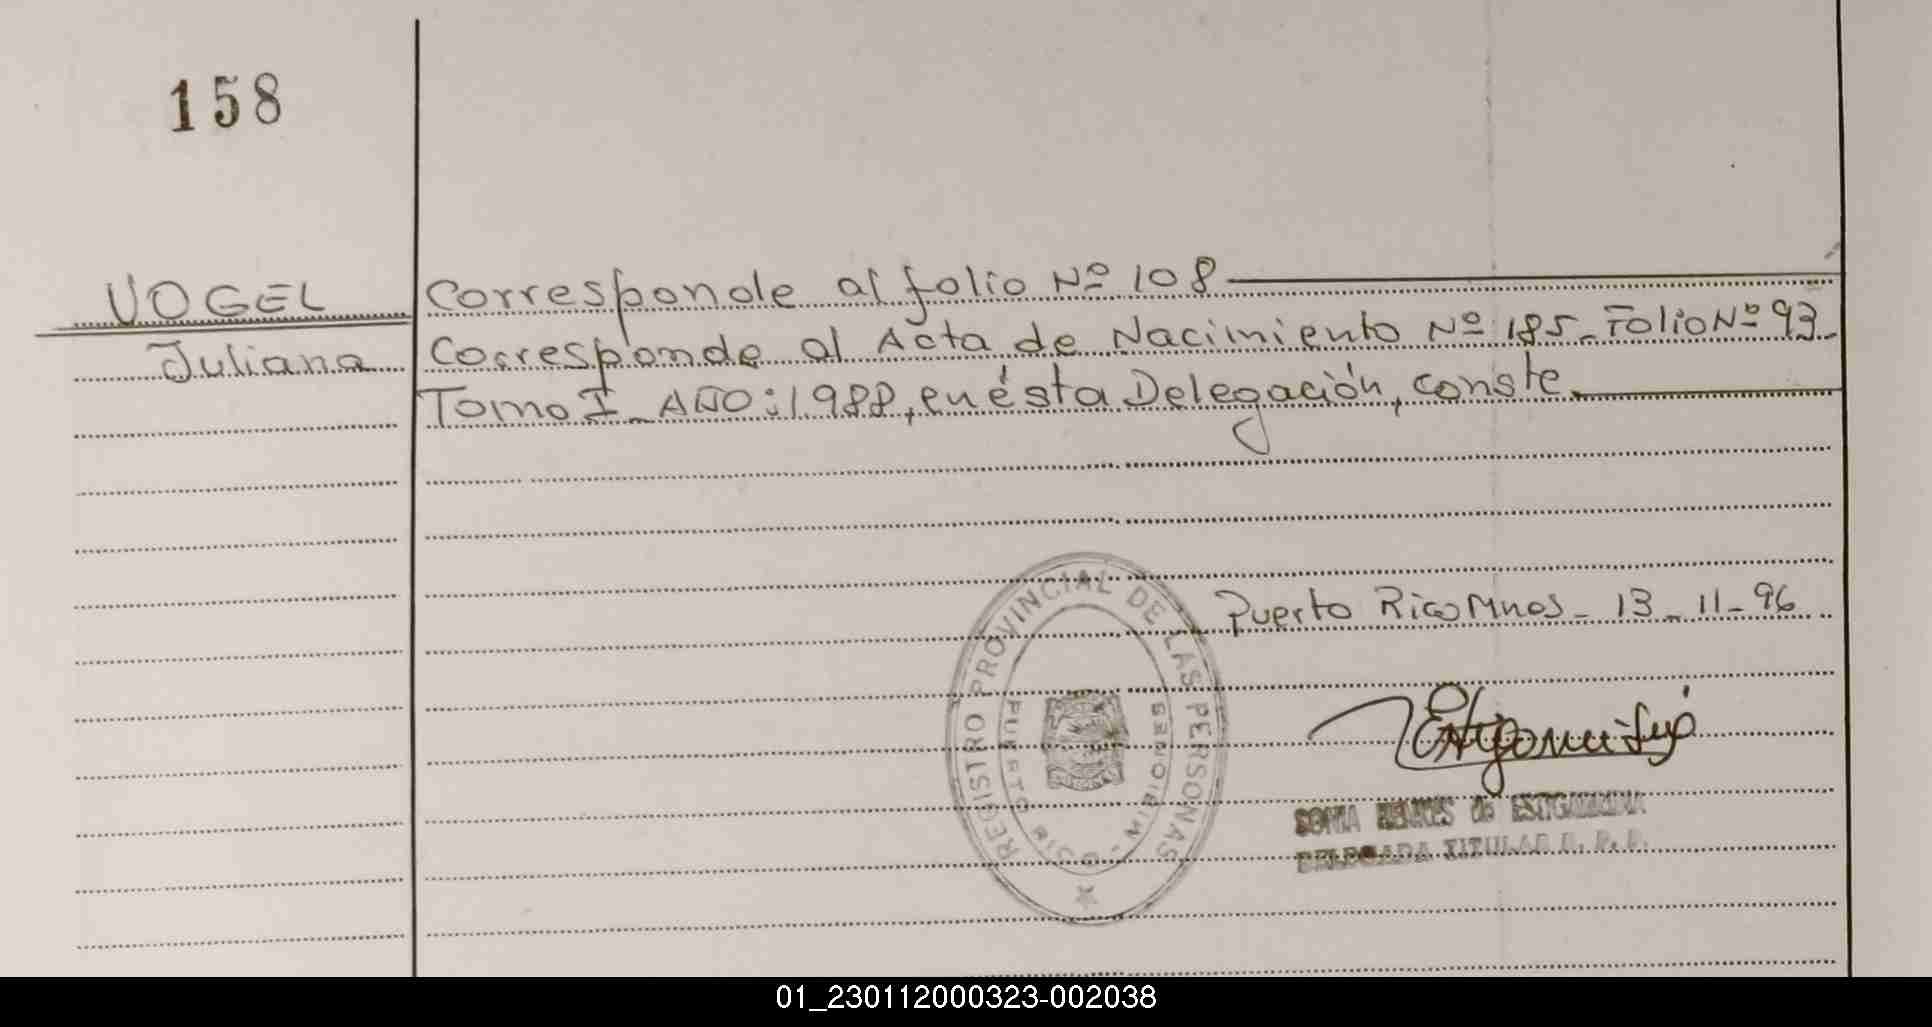 158
VOGEL
Juliana
Corresponde al folio Nº 108
Corresponde al Acta de Nacimiento Nº 185_ Folio Nº 93_
Tomo I_ AÑO: 1988, en ésta Delegación, conste
REGISTRO PROVINCIAL DE LAS PERSONAS
PUERTO RICO - MISIONES
Puerto Rico Mnes_ 13_11_96
SONIA de ESTIGARRIBIA
DELEGADA TITULAR R. P. P.
01_230112000323-002038